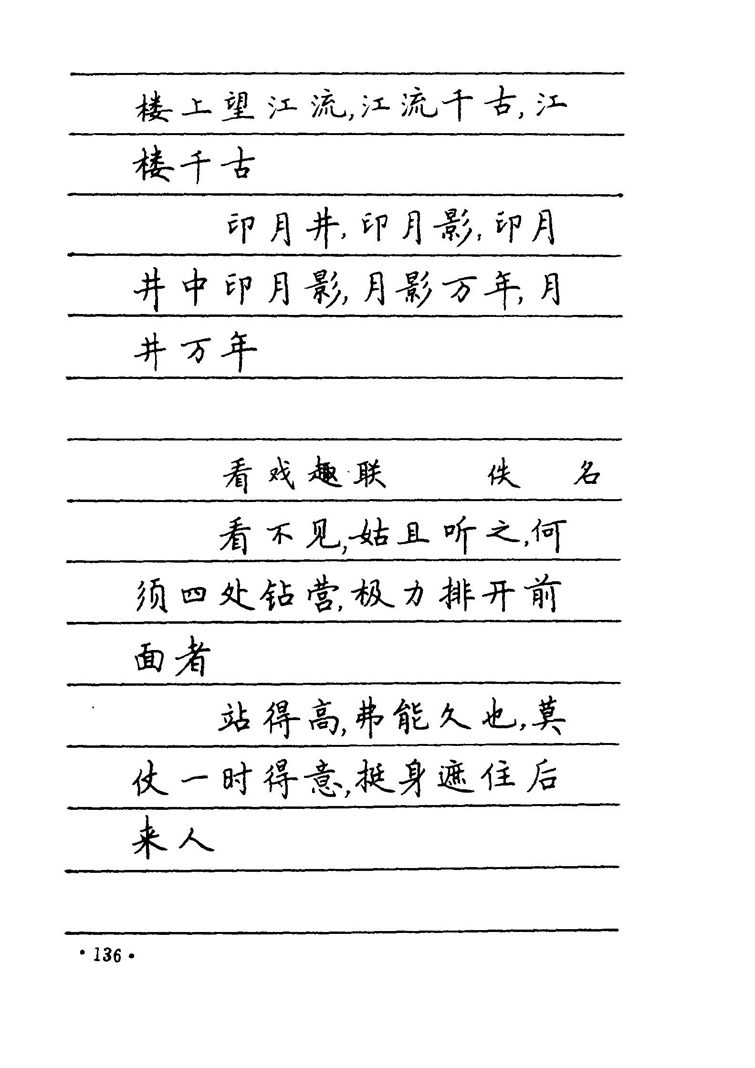 楼上望江流,江流千古,江
楼千古
印月井,印月影,印月
井中印月影,月影万年,月
井万年
看戏趣联 佚 名
看不见,姑且听之,何
须四处钻营,极力排开前
面者
站得高,弗能久也,莫
仗一时得意,挺身遮住后
来人
·136·